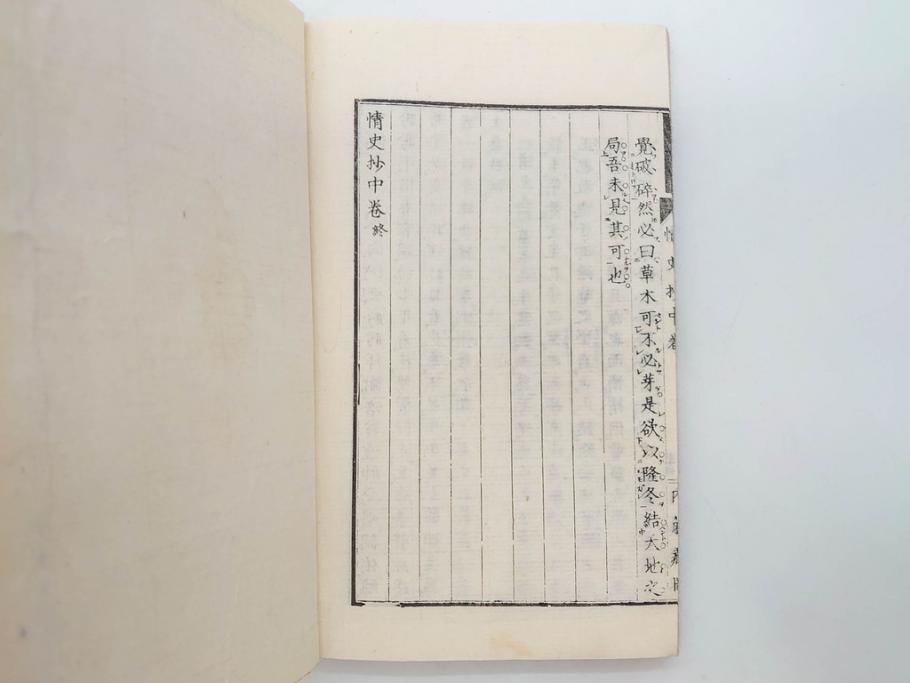 覺破碎然必曰草木可不必芽是欲以隆冬結大地之
局吾未見其可也
情史抄中卷終
情史抄中卷